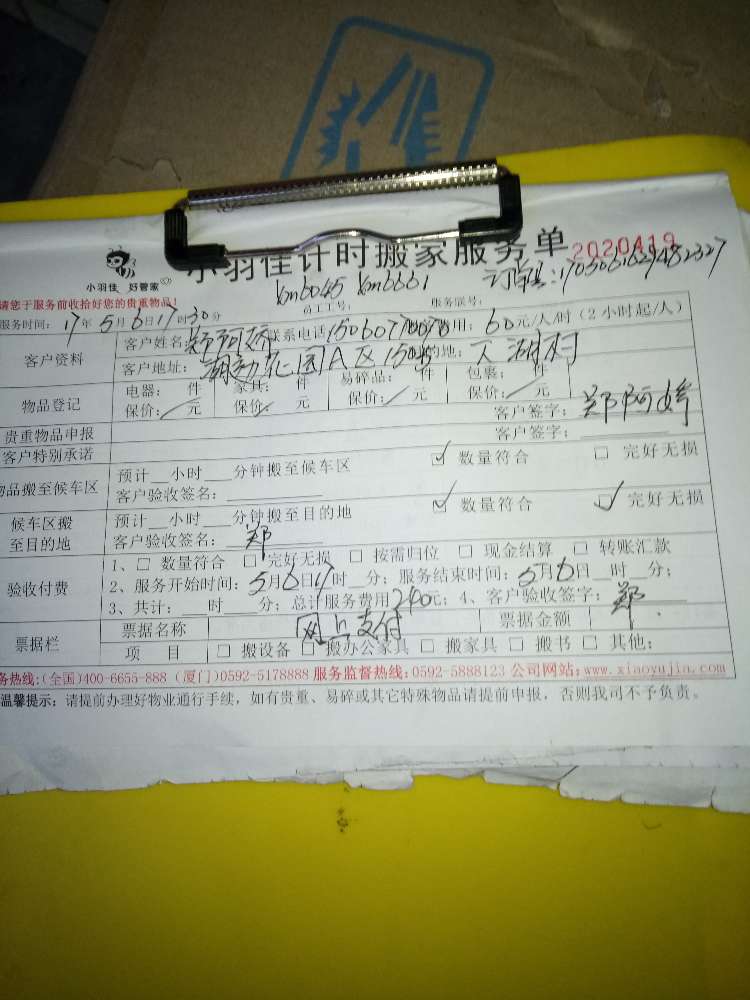 小羽佳计时搬家服务单 2020419
小羽佳 好管家
xm6045 xm6661
请您于服务前收拾好您的贵重物品! 员工工号: 服务联号:
服务时间: 17年5月6日17时30分
客户资料 客户姓名: 郑阿娇 联系电话 费用: 60元/人/时 (2小时起/人)
客户地址: 花园A区 的地: 天湖村
物品登记 电器: 件 家具: 件 易碎品: 件 包裹: 件
保价: 元 保价: 元 保价: 元 保价: 元
贵重物品申报 客户签字: 郑阿娇
客户特别承诺 客户签字:
物品搬至候车区 预计__小时___分钟搬至候车区 ☑ 数量符合 □ 完好无损
客户验收签名:
候车区搬至目的地 预计__小时___分钟搬至目的地 ☑ 数量符合 ☑ 完好无损
客户验收签名: 郑
验收付费 1、□ 数量符合 □ 完好无损 □ 按需归位 □ 现金结算 □ 转账汇款
2、服务开始时间: 5月6日17时__分; 服务结束时间: 5月6日__时__分;
3、共计: __时__分; 总计服务费用240元; 4、客户验收签字: 郑
票据栏 票据名称 网上支付 票据金额
项 目 □ 搬设备 □ 搬办公家具 □ 搬家具 □ 搬书 □ 其他:
务热线:(全国)400-6655-888 (厦门)0592-5178888 服务监督热线:0592-5888123 公司网站:www.xiaoyujia.com
温馨提示: 请提前办理好物业通行手续, 如有贵重、易碎或其它特殊物品请提前申报, 否则我司不予负责。